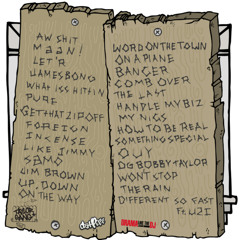 AW SHIT
MAAN!
LET'R
JAMESBOND
WHAT ISS HITTIN
PURE
GET THAT ZIP OFF
FOREIGN
INCENSE
LIKE JIMMY
SBMO
JIM BROWN
UP, DOWN
ON THE WAY
WORD ON THE TOWN
ON A PLANE
BANGER
COMB OVER
THE LAST
HANDLE MY BIZ
MY NIGS
HOW TO BE REAL
SOMETHING SPECIAL
GUY
DG BOBBY TAYLOR
WONT STOP
THE RAIN
DIFFERENT SO FAST
Ft. U2I